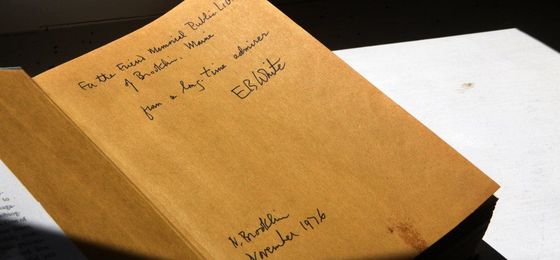 For the Friend Memorial Public
of Brooklin. Maine
from a long-time admirer
EB White
N. Brooklin
November 1976